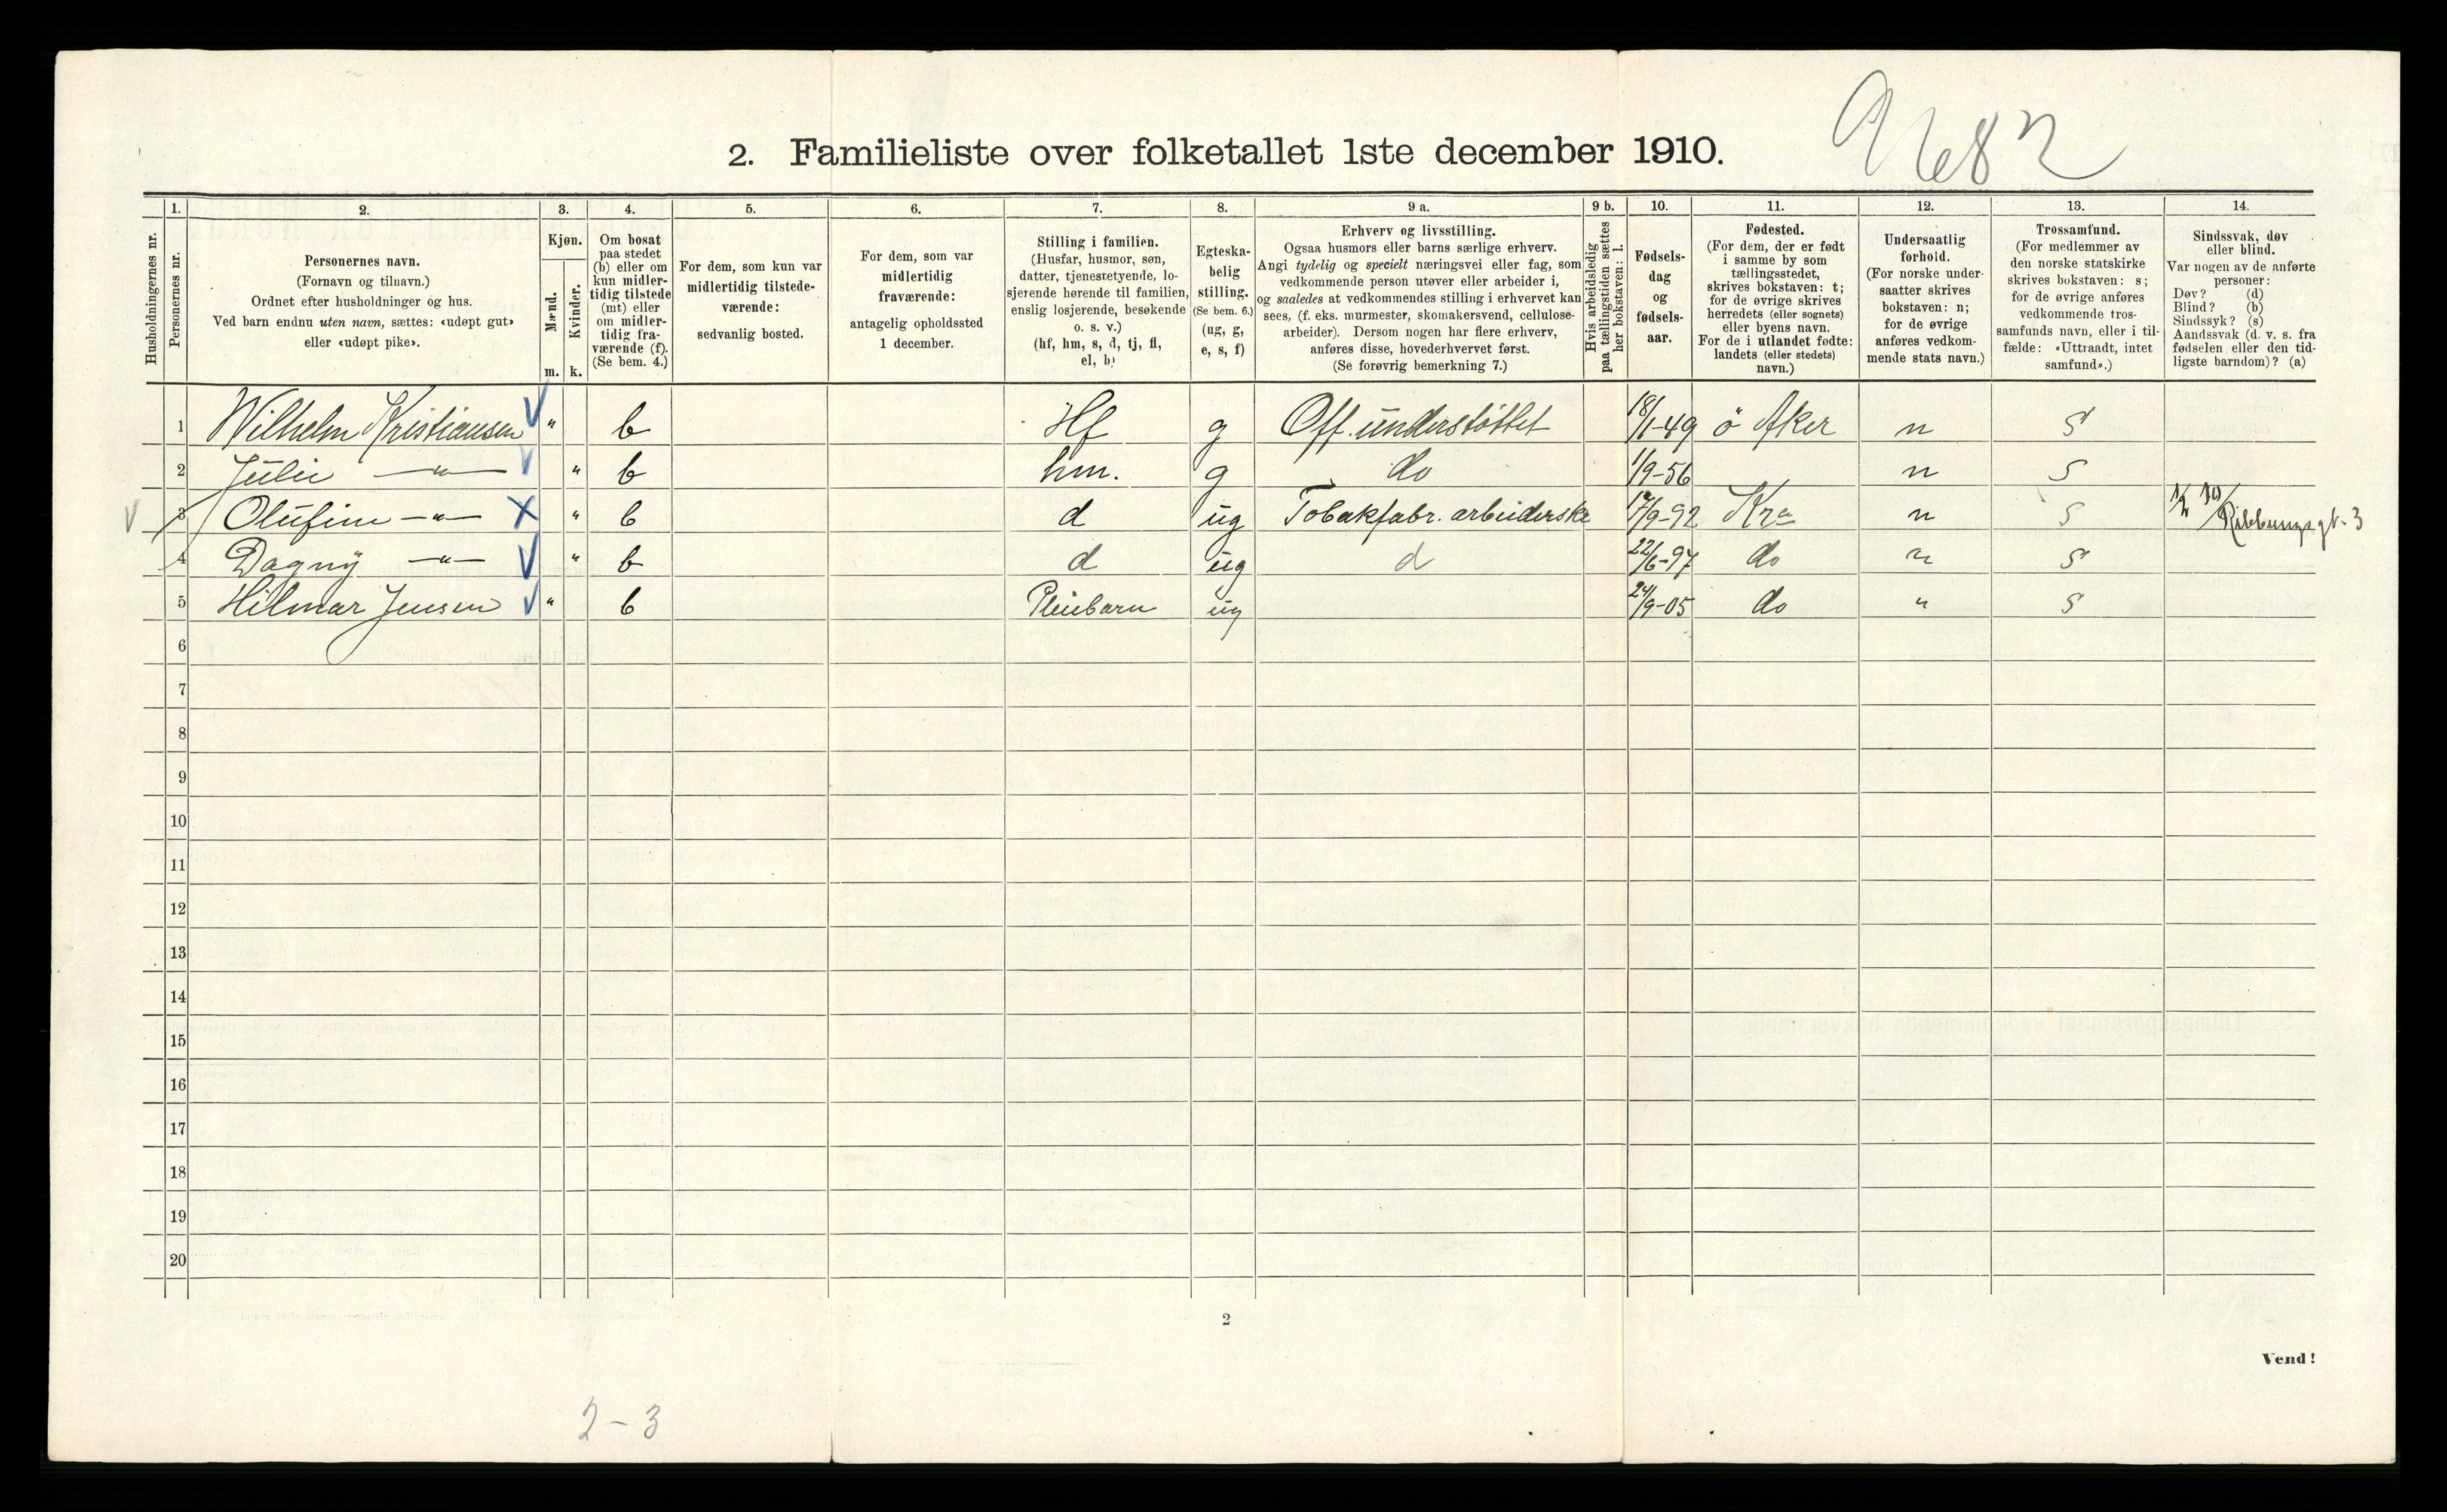 2. Familieliste over folketallet 1ste december 1910.
Husholdningernes nr.
1. Personernes nr.
2. Personernes navn.
(Fornavn og tilnavn.)
Ordnet efter husholdninger og hus.
Ved barn endnu uten navn, sættes: «udøpt gut»
eller «udøpt pike».
3. Kjøn.
Mænd. m.
Kvinder. k.
4. Om bosat
paa stedet
(b) eller om
kun midler-
tidig tilstede
(mt) eller
om midler-
tidig fra-
værende (f).
(Se bem. 4.)
5. For dem, som kun var
midlertidig tilstede-
værende:
sedvanlig bosted.
6. For dem, som var
midlertidig
fraværende:
antagelig opholdssted
1 december.
7. Stilling i familien.
(Husfar, husmor, søn,
datter, tjenestetyende, lo-
sjerende hørende til familien,
enslig losjerende, besøkende
o. s. v.)
(hf, hm, s, d, tj, fl,
el, b)
8. Egteska-
belig
stilling.
(Se bem. 6.)
(ug, g,
e, s, f)
9 a. Erhverv og livsstilling.
Ogsaa husmors eller barns særlige erhverv.
Angi tydelig og specielt næringsvei eller fag, som
vedkommende person utøver eller arbeider i,
og saaledes at vedkommendes stilling i erhvervet kan
sees, (f. eks. murmester, skomakersvend, cellulose-
arbeider). Dersom nogen har flere erhverv,
anføres disse, hovederhvervet først.
(Se forøvrig bemerkning 7.)
9 b. Hvis arbeidsledig
paa tællingstiden sættes
her bokstaven: l.
10. Fødsels-
dag
og
fødsels-
aar.
11. Fødested.
(For dem, der er født
i samme by som
tællingsstedet,
skrives bokstaven: t;
for de øvrige skrives
herredets (eller sognets)
eller byens navn.
For de i utlandet fødte:
landets (eller stedets)
navn.)
12. Undersaatlig
forhold.
(For norske under-
saatter skrives
bokstaven: n;
for de øvrige
anføres vedkom-
mende stats navn.)
13. Trossamfund.
(For medlemmer av
den norske statskirke
skrives bokstaven: s;
for de øvrige anføres
vedkommende tros-
samfunds navn, eller i til-
fælde: «Uttraadt, intet
samfund».)
14. Sindssvak, døv
eller blind.
Var nogen av de anførte
personer:
Døv? (d)
Blind? (b)
Sindssyk? (s)
Aandssvak (d. v. s. fra
fødselen eller den tid-
ligste barndom)? (a)
1 Wilhelm Kristiansen " b Hf g Off. understøttet 18/1-49 ö Aker n S
2 Julie —"— " b hm. g do 1/9-56 n S
3 Olufine —"— " b d ug Tobakfabr. arbeiderske 17/9-92 Kra n S Ribbungsgt. 3
4 Dagny —"— " b d ug d 22/6-97 do n S
5 Hilmar Jensen " b Pleiebarn ug 24/9-05 do " S
6
7
8
9
10
11
12
13
14
15
16
17
18
19
20
2
Vend!
2-3